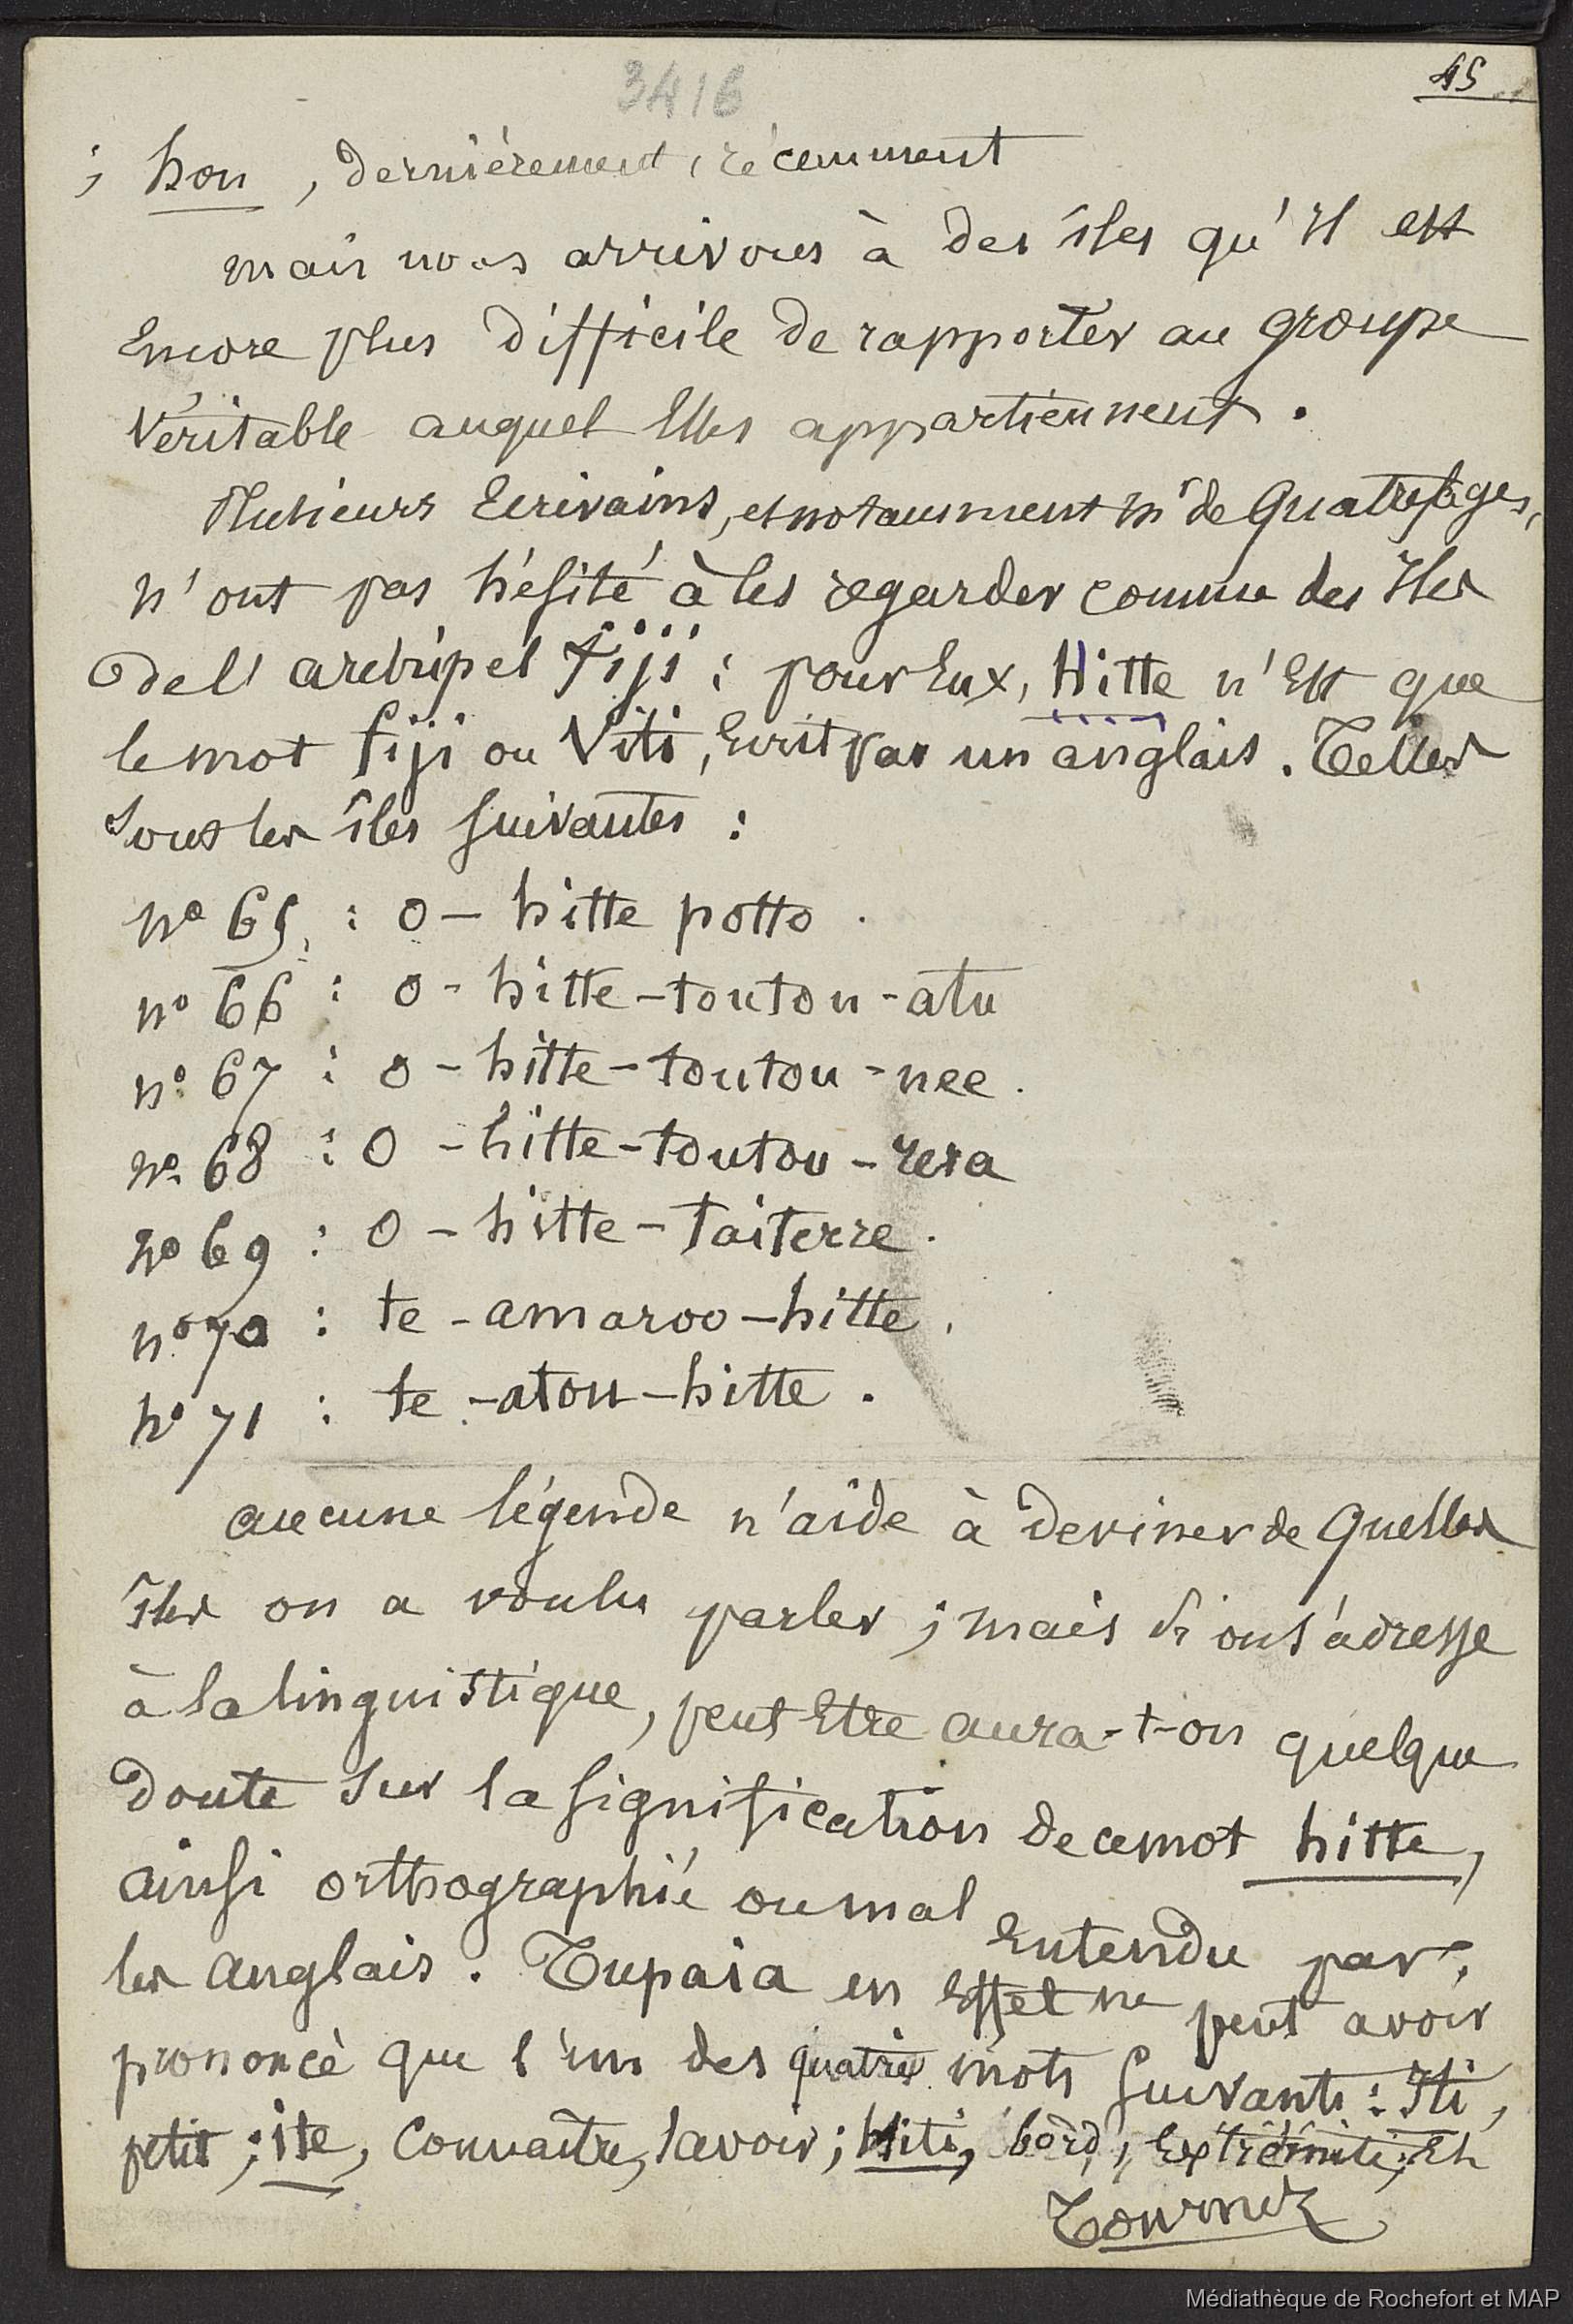 3416
45
; hou, dernièrement, récemment
mais nous arrivons à des îles qu'il est
Encore plus difficile de rapporter au groupe
Véritable auquel Elles appartiennent.
Plusieurs Ecrivains, et notamment Mr de Quatrefages,
n'ont pas hésité à les regarder comme des Iles
de l'archipel fiji : pour Eux, Hitte n'Est que
le mot fiji ou Viti, Ecrit par un anglais. Telles
sont les îles suivantes :
no 65, : o - hitte potto.
no 66 : o - hitte - toutou - atu
no 67 : o - hitte - toutou - nee.
no 68 : O - hitte - toutou - rera
no 69 : O - hitte - taiterre.
no 70 : te - amaroo - hitte.
no 71 : te - atou - hitte.
aucune légende n'aide à deviner de quelles
îles on a voulu parler ; mais si on s'adresse
à la linguistique, peut Etre aura-t-on quelque
doute sur la signification de ce mot hitte,
ainsi orthographié ou mal Entendu par
les anglais. Tupaia en Effet ne peut avoir
prononcé que l'un des quatre mots suivants : Iti,
petit ; ite, connaître, savoir ; Hiti, bord, Extrémité ; Et
Tournez
Médiathèque de Rochefort et MAP